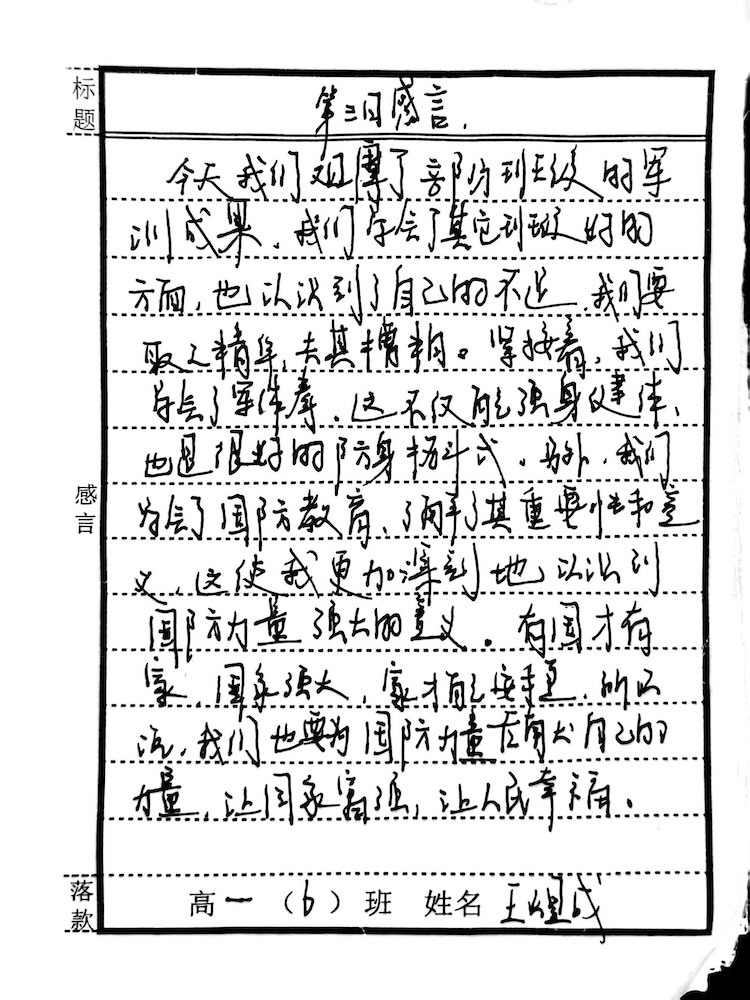 标题
第三日感言.
今天我们观摩了部分班级的军
训成果，我们学会了其它班级好的
方面，也认识到了自己的不足，我们要
取之精华，去其糟粕。紧接着，我们
学会了军体拳，这不仅能强身健体，
也是很好的防身格斗式。另外，我们
学会了国防教育，了解了其重要性和意
义，这使我更加深刻地认识到
国防力量强大的意义。有国才有
家，国家强大，家才能安康，所以
说，我们也要为国防力量贡献出自己的
力量，让国家富强，让人民幸福。
感言
落款
高一（6）班 姓名 王煜成